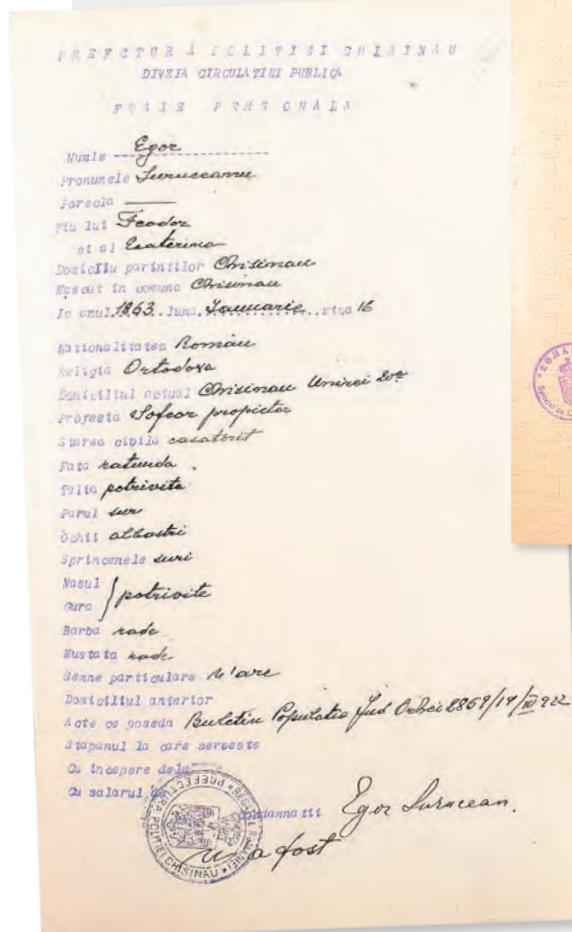 PREFECTURA POLITIEI CHISINAU
DIVZIA CIRCULATIEI PUBLICA
FOAIE PERSONALA
Numele Egor
Pronumele Suruceanu
Porecla —
Fiu lui Feodor
si al Ecaterina
Domicilu parintilor Chisinau
Nascut in comuna Chisinau
In anul 1863 luna Ianuarie ziua 16
Nationalitatea Român
Religia Ortodoxa
Domiciliul actual Chisinau Unirei
Profesia Sofeor propietar
Starea civila casatorit
Fata ratunda
Talia potrivita
Parul sur
Ochii albastri
Sprincenele suri
Nasul
Gura } potrivite
Barba rade
Mustata rade
Semne particulare n'are
Domiciliul anterior
Acte ce poseda Buletin Populatie Jud Orhei 8869/14/III 922
Stapanul la care serveste
Cu incepere dela
Cu salarul de
Condamnatii
Egor Surucean.
nu a fost
PREFECTURA POLITIEI CHISINAU